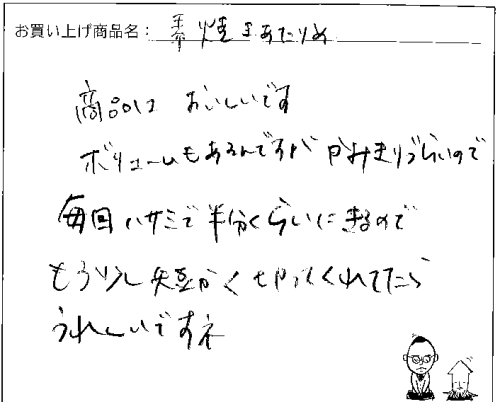 お買い上げ商品名：素焼きあたりめ
商品は おいしいです
ボリュームもあるんですが かみきりづらいので
毎回ハサミで半分くらいにきるので
もう少し短かく切ってくれてたら
うれしいですネ